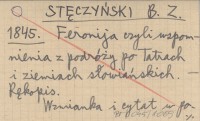 STĘCZYŃSKI B. Z.
1845. Feronija czyli wspom-
nienia z podróży po Tatrach
i ziemiach słowiańskich. –
Rękopis.
Wzmianka i cytat w po-